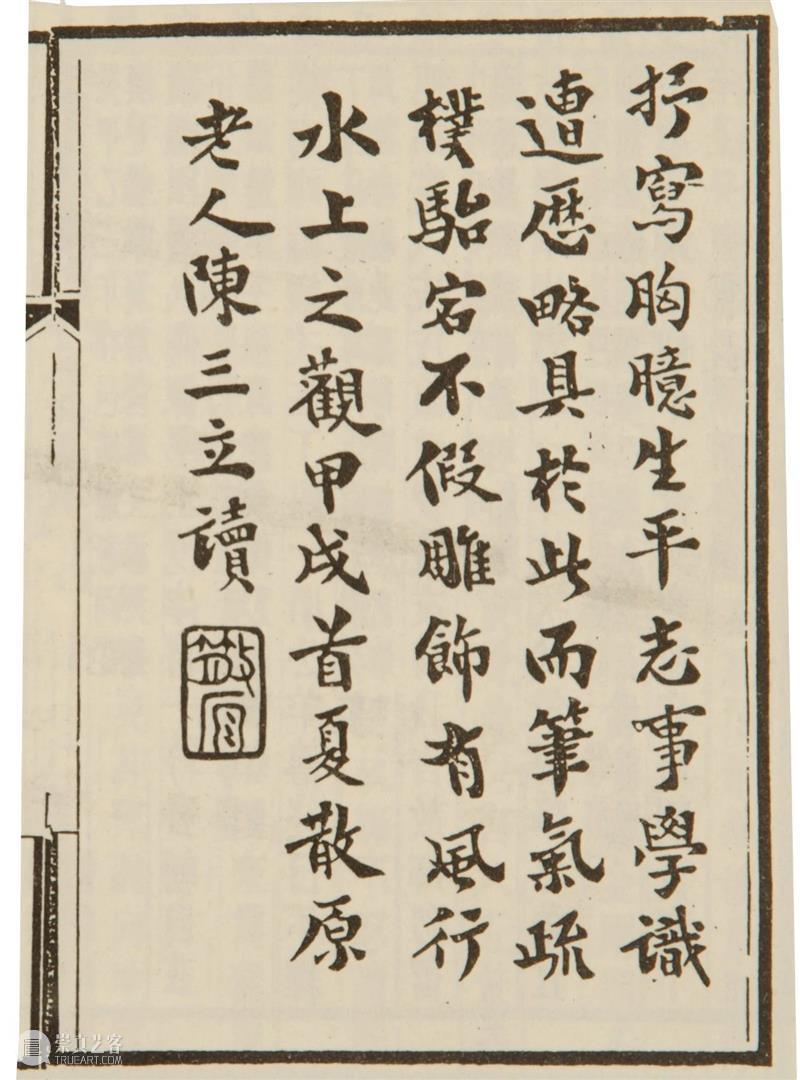 抒寫胸臆生平志事學識
遭歷略具於此而筆氣疏
樸駘宕不假雕飾有風行
水上之觀甲戌首夏散原
老人陳三立讀
散原
崇真艺客
TRUEART.COM